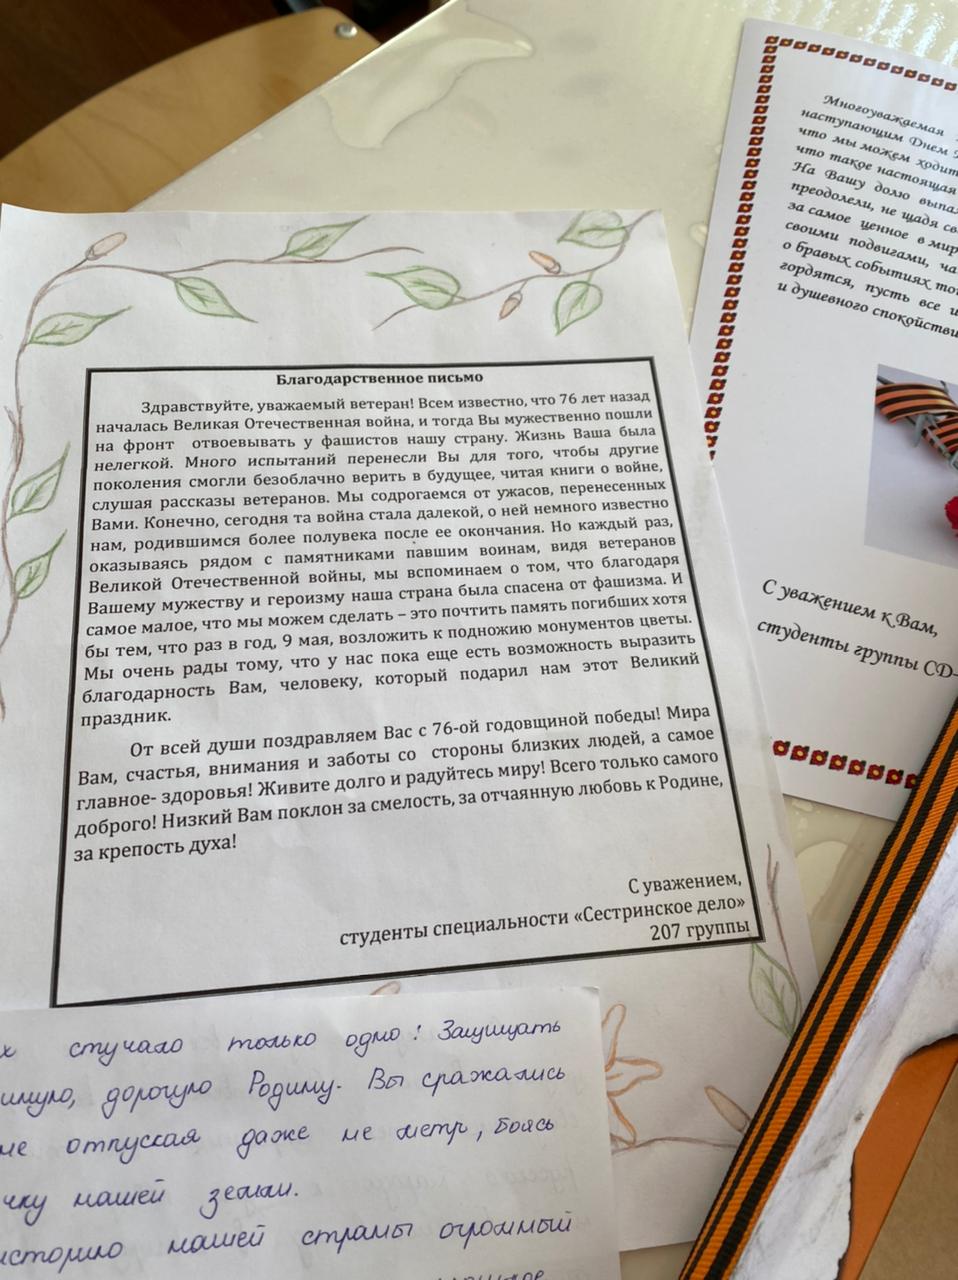 Благодарственное письмо
Здравствуйте, уважаемый ветеран! Всем известно, что 76 лет назад
началась Великая Отечественная война, и тогда Вы мужественно пошли
на фронт отвоевывать у фашистов нашу страну. Жизнь Ваша была
нелегкой. Много испытаний перенесли Вы для того, чтобы другие
поколения смогли безоблачно верить в будущее, читая книги о войне,
слушая рассказы ветеранов. Мы содрогаемся от ужасов, перенесенных
Вами. Конечно, сегодня та война стала далекой, о ней немного известно
нам, родившимся более полувека после ее окончания. Но каждый раз,
оказываясь рядом с памятниками павшим воинам, видя ветеранов
Великой Отечественной войны, мы вспоминаем о том, что благодаря
Вашему мужеству и героизму наша страна была спасена от фашизма. И
самое малое, что мы можем сделать – это почтить память погибших хотя
бы тем, что раз в год, 9 мая, возложить к подножию монументов цветы.
Мы очень рады тому, что у нас пока еще есть возможность выразить
благодарность Вам, человеку, который подарил нам этот Великий
праздник.
От всей души поздравляем Вас с 76-ой годовщиной победы! Мира
Вам, счастья, внимания и заботы со стороны близких людей, а самое
главное- здоровья! Живите долго и радуйтесь миру! Всего только самого
доброго! Низкий Вам поклон за смелость, за отчаянную любовь к Родине,
за крепость духа!
С уважением,
студенты специальности «Сестринское дело»
207 группы
Многоуважаемая
наступающим Днем
что мы можем ходить
что такое настоящая
На Вашу долю выпа
преодолели, не щадя св
за самое ценное в мир
своими подвигами, ча
о бравых событиях то
гордятся, пусть все
и душевного спокойстви
С уважением к Вам,
студенты группы СД-
стучало только одно: Защищать
дорогую Родину. Вы сражались
не отпуская даже не метр, боясь
нашей земли.
историю нашей страны огромный